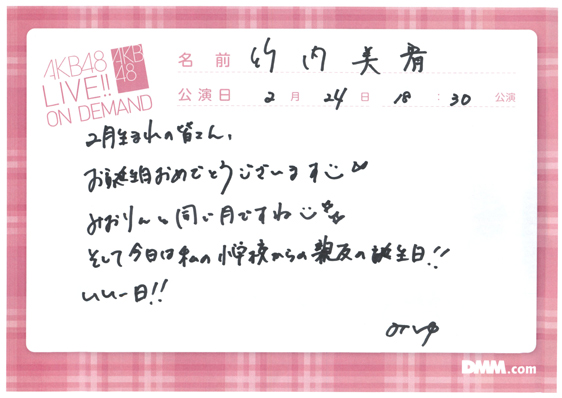 AKB48
LIVE!!
ON DEMAND
AKB
48
名前 竹内美宥
公演日 2月24日 18:30 公演
2月生まれの皆さん、
お誕生日おめでとうございます
みおりんと同じ月ですね
そして今日は私の小学校からの親友の誕生日!!
いい一日!!
DMM.com